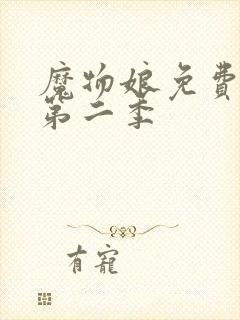 魔物娘免費
第二季
有寵